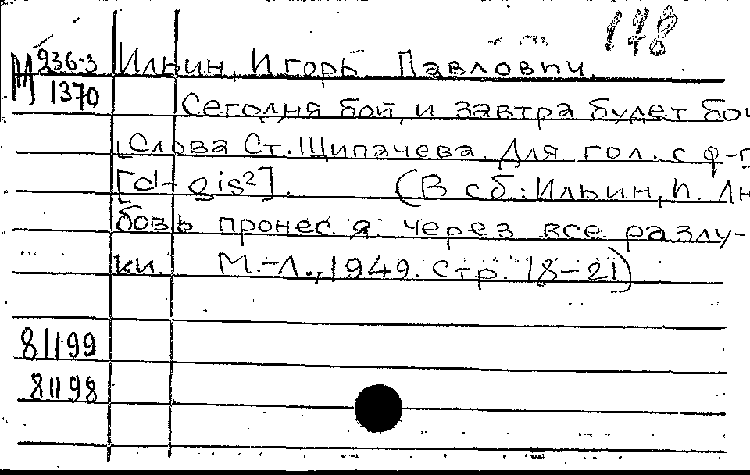 178
М 936-3 Ильин, Игорь Павлович.
1370 Сегодня бой, и завтра будет бой
[Слова Ст. Щипачева. Для гол. с ф-п
[d-gis²]. (В сб.: Ильин, И. Лю
бовь пронес я через все разлу-
ки. М.-Л., 1949. Стр. 18-21)
81199
81198